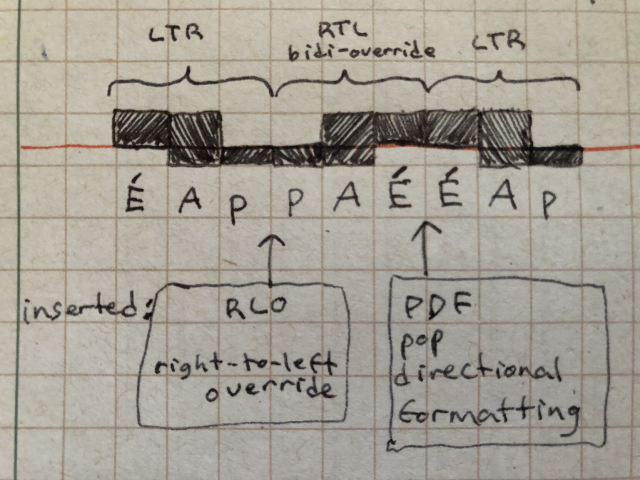 LTR RTL LTR
bidi-override
É A p p A É É A p
inserted: RLO
right-to-left
override
PDF
pop
directional
formatting